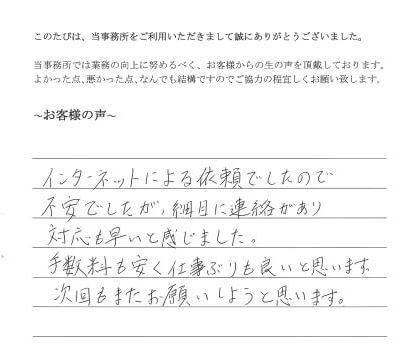 このたびは、当事務所をご利用いただきまして誠にありがとうございました。
当事務所では業務の向上に努めるべく、お客様からの生の声を頂戴しております。
よかった点、悪かった点、なんでも結構ですのでご協力の程宜しくお願い致します。
～お客様の声～
インターネットによる依頼でしたので
不安でしたが、細目に連絡があり
対応も早いと感じました。
手数料も安く仕事ぶりも良いと思います
次回もまたお願いしようと思います。